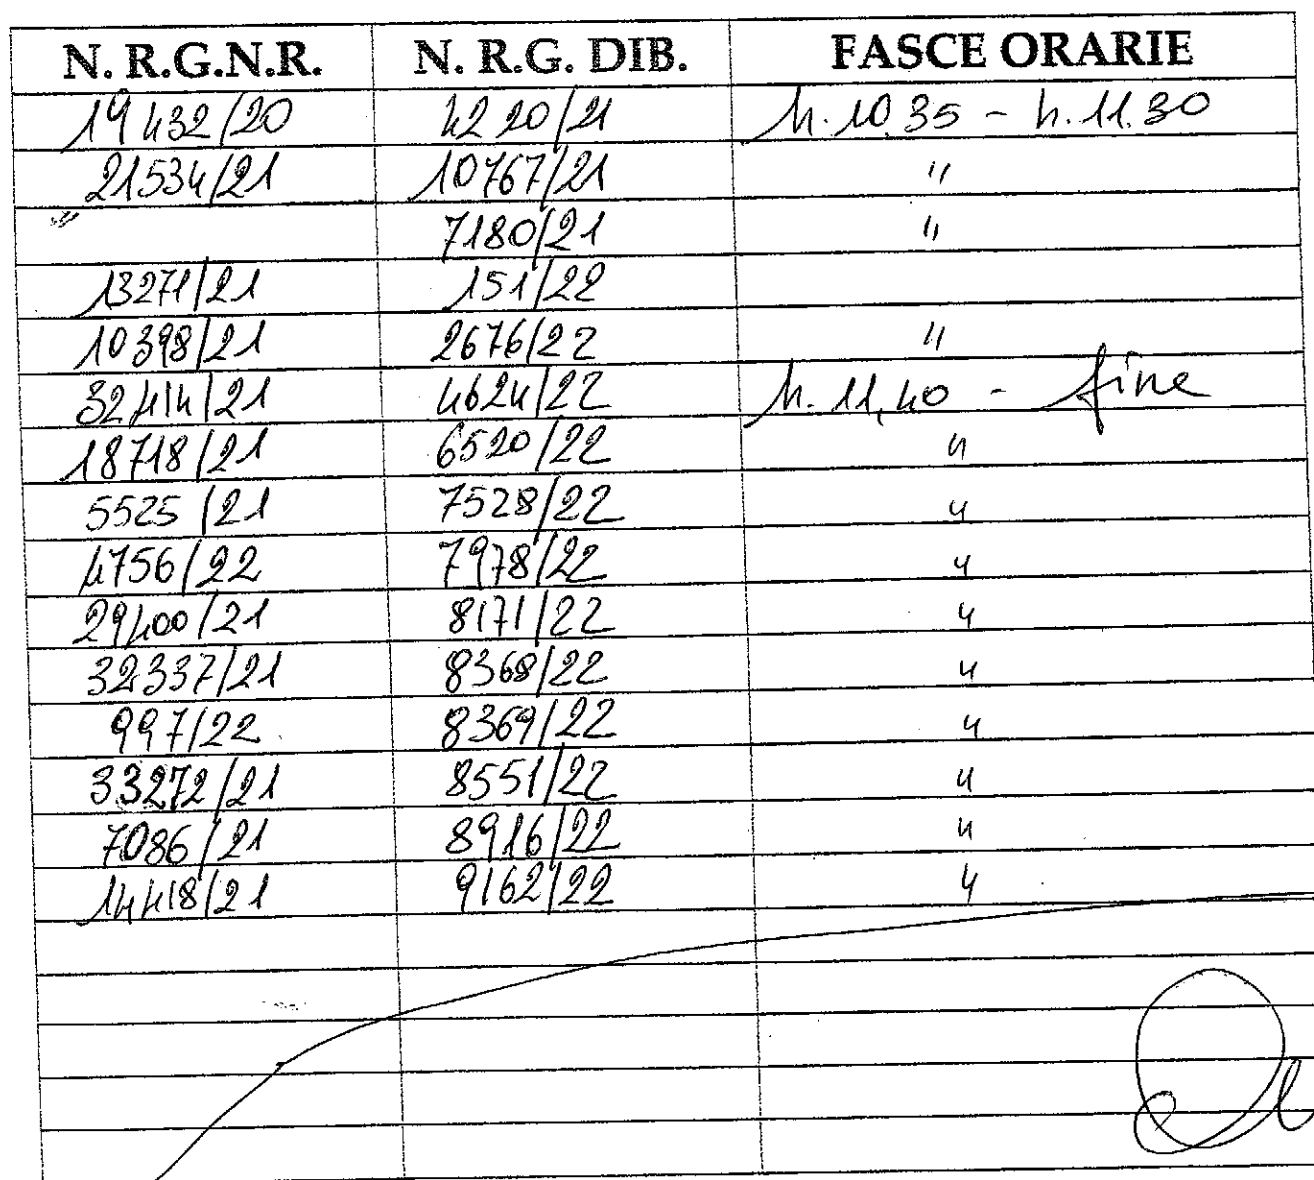 N. R.G.N.R. N. R.G. DIB. FASCE ORARIE
19432/20 4220/21 h.10.35 - h.11.30
21534/21 10767/21 "
7180/21 "
13271/21 151/22
10398/21 2676/22 "
32414/21 4624/22 h. 11,40 - fine
18718/21 6520/22 "
5525/21 7528/22 "
4756/22 7978/22 "
29400/21 8171/22 "
32337/21 8368/22 "
997/22 8369/22 "
33272/21 8551/22 "
7086/21 8916/22 "
14418/21 9162/22 "